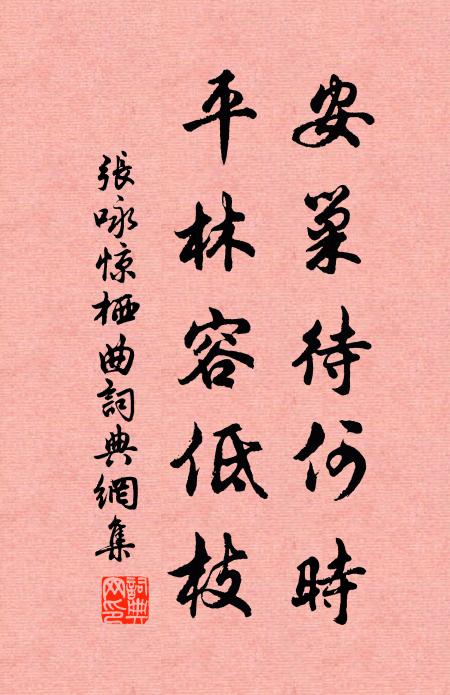 安巢待何時
平林容低枝
張咏惊栖曲詞典網集
詞典
网印